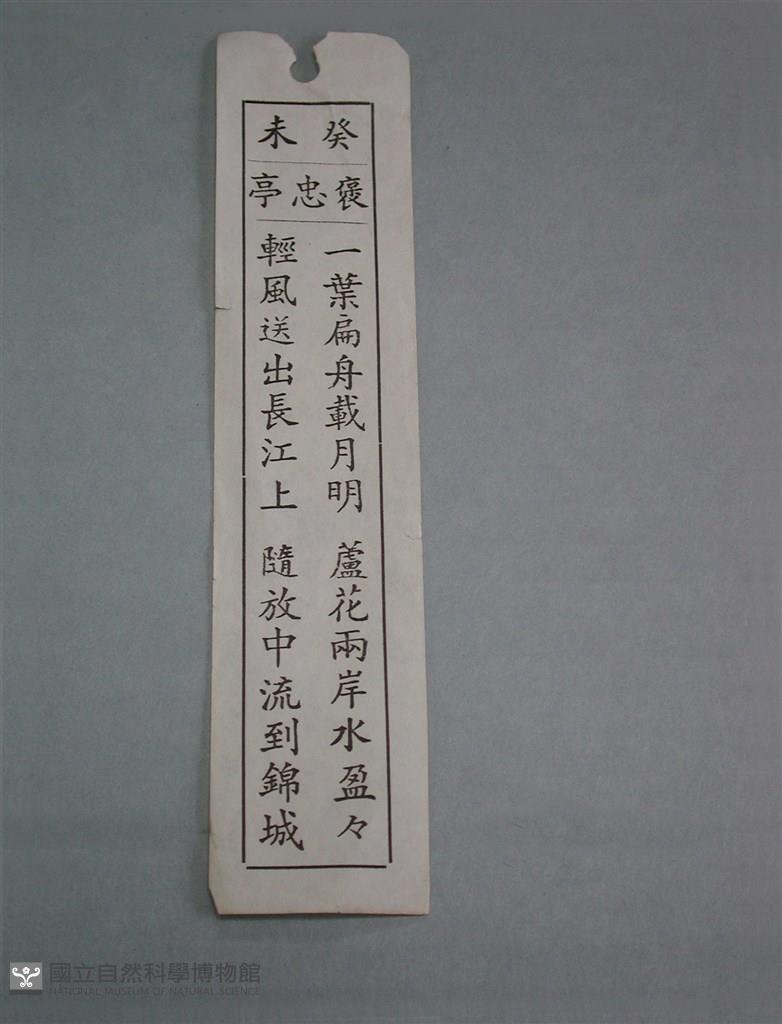 癸未
褒忠亭
一葉扁舟載月明 蘆花兩岸水盈々
輕風送出長江上 隨放中流到錦城
國立自然科學博物館
NATIONAL MUSEUM OF NATURAL SCIENCE